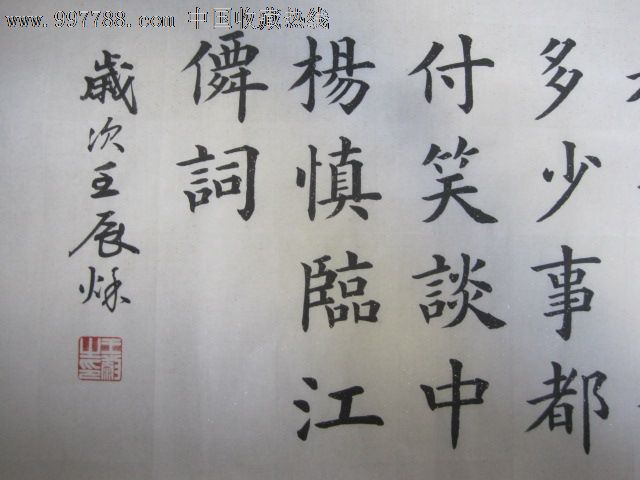 www.997788.com 中国收藏热线
多少事都
付笑談中
楊慎臨江
僊詞
歲次壬辰秌